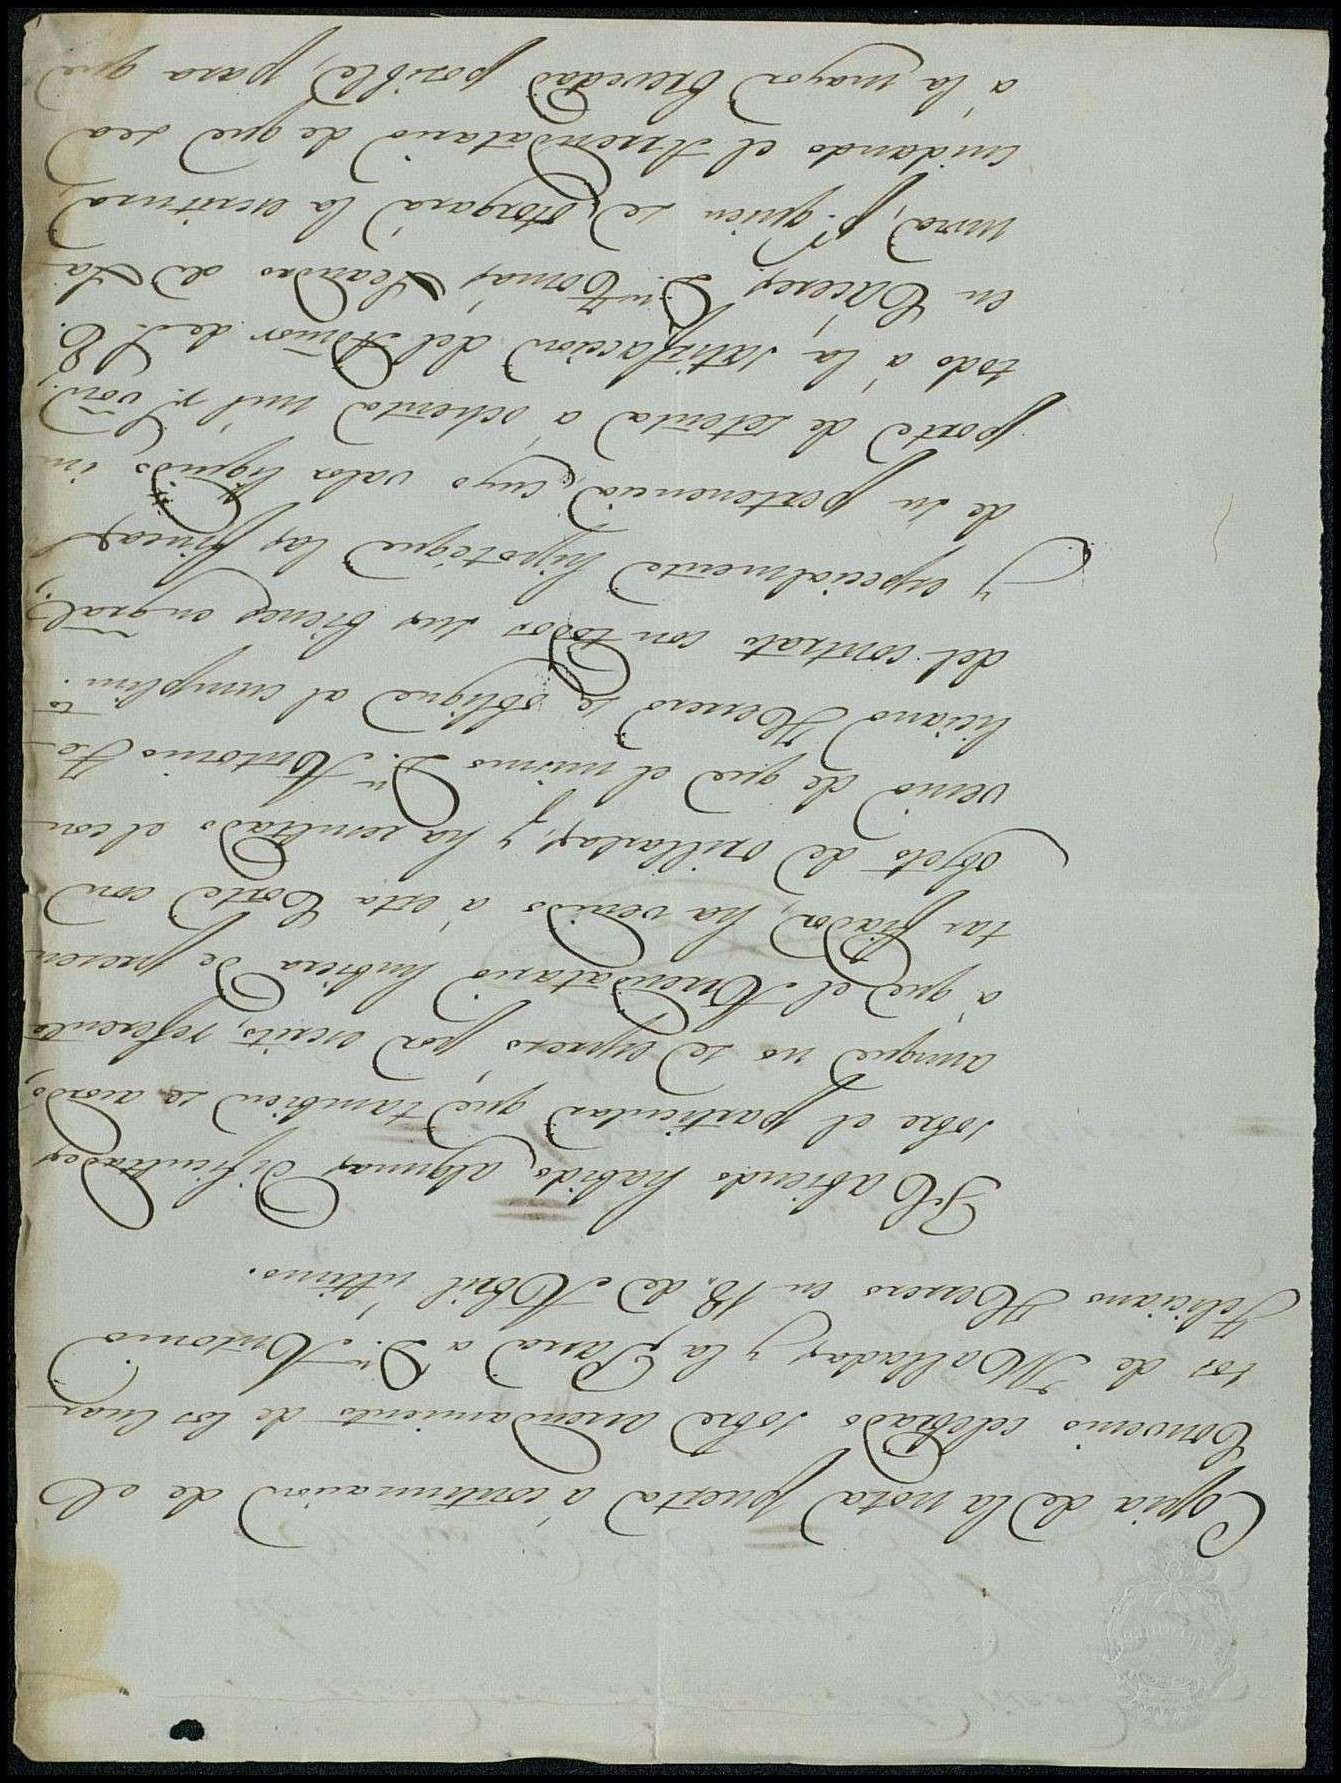 Copia de la nota puesta á continuacion de el
Convenio celebrado sobre arrendamiento de los Cuar-
tos de Malladas y la Parra a D.n Antonio
Feliciano Herrero en 18. de Abril ultimo.
Habiendo habido algunas dificultades
sobre el particular que tambien se acordó,
aunque no se expreso por escrito, referente
á que el Arrendatario hubiera de presen
tar fiador, ha venido á esta Corte con
objeto de orillarlas, y ha resultado el con-
venio de que el mismo D.n Antonio Fe-
liciano Herrero se obligue al cumplim.to
del contrato con todos sus bienes en gral.,
y especialmente hipoteque las fincas
de su pertenencia, cuyo valor liquido im-
porte de setenta á ochenta mil r.s von.
todo á la satisfaccion del Admor. de S. E.
en Caceres, D.n Tomas Leandro de La-
mra, p.r quien se otorgará la escritura,
cuidando el Arrendatario de que sea
á la mayor brevedad posible, para que